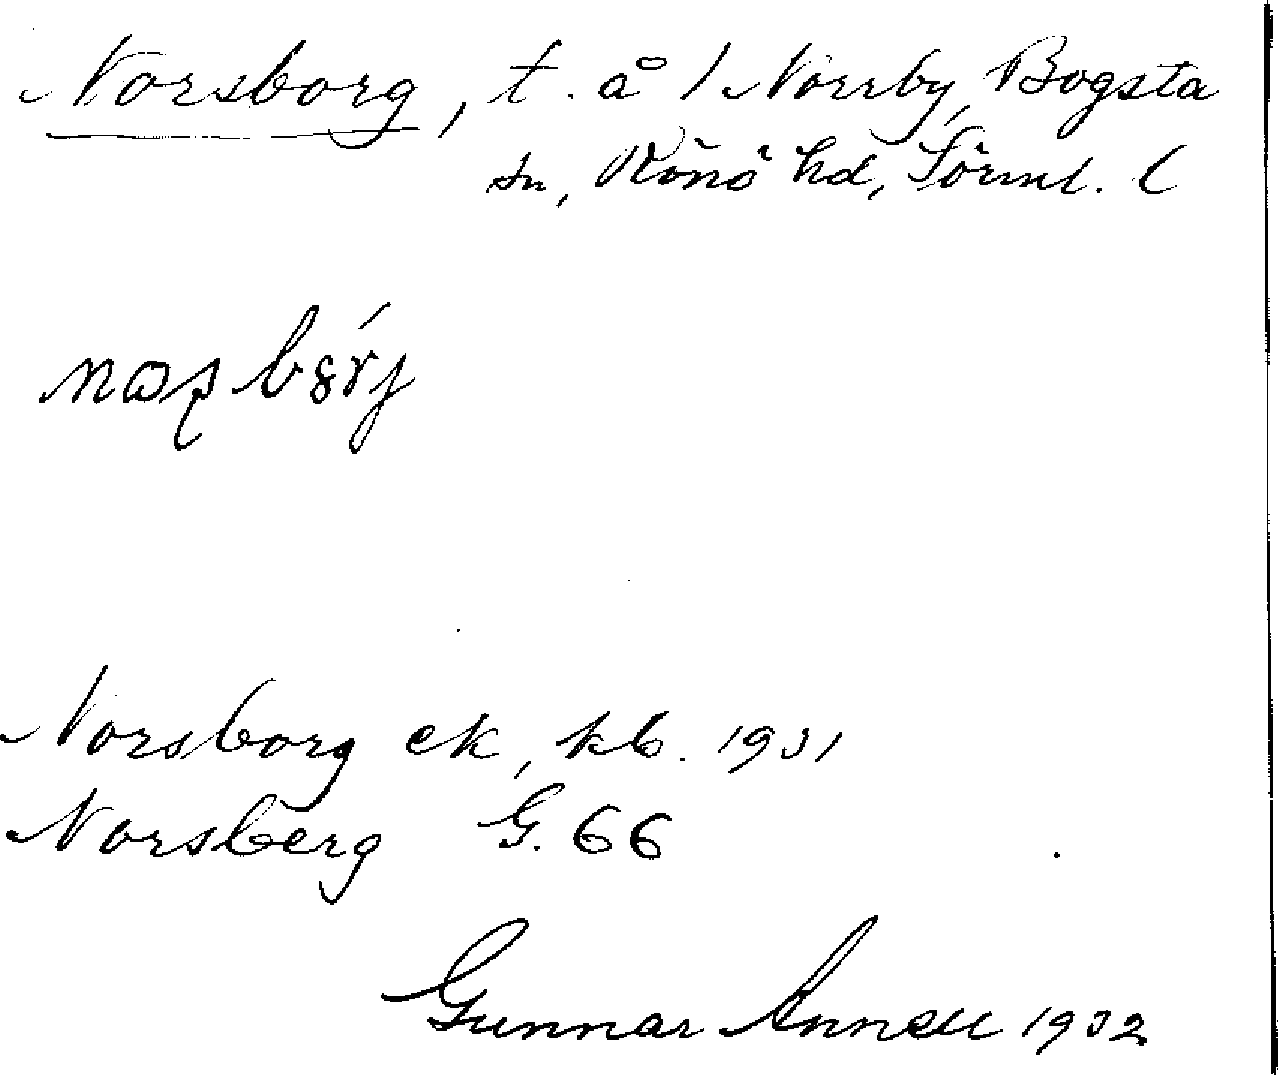 Norsborg, t. å / Norrby, Bogsta
sn, Rönö hd, Sörml. l
Norsborg ek, kb. 1931
Norsberg G. 66
Gunnar Annell 1932